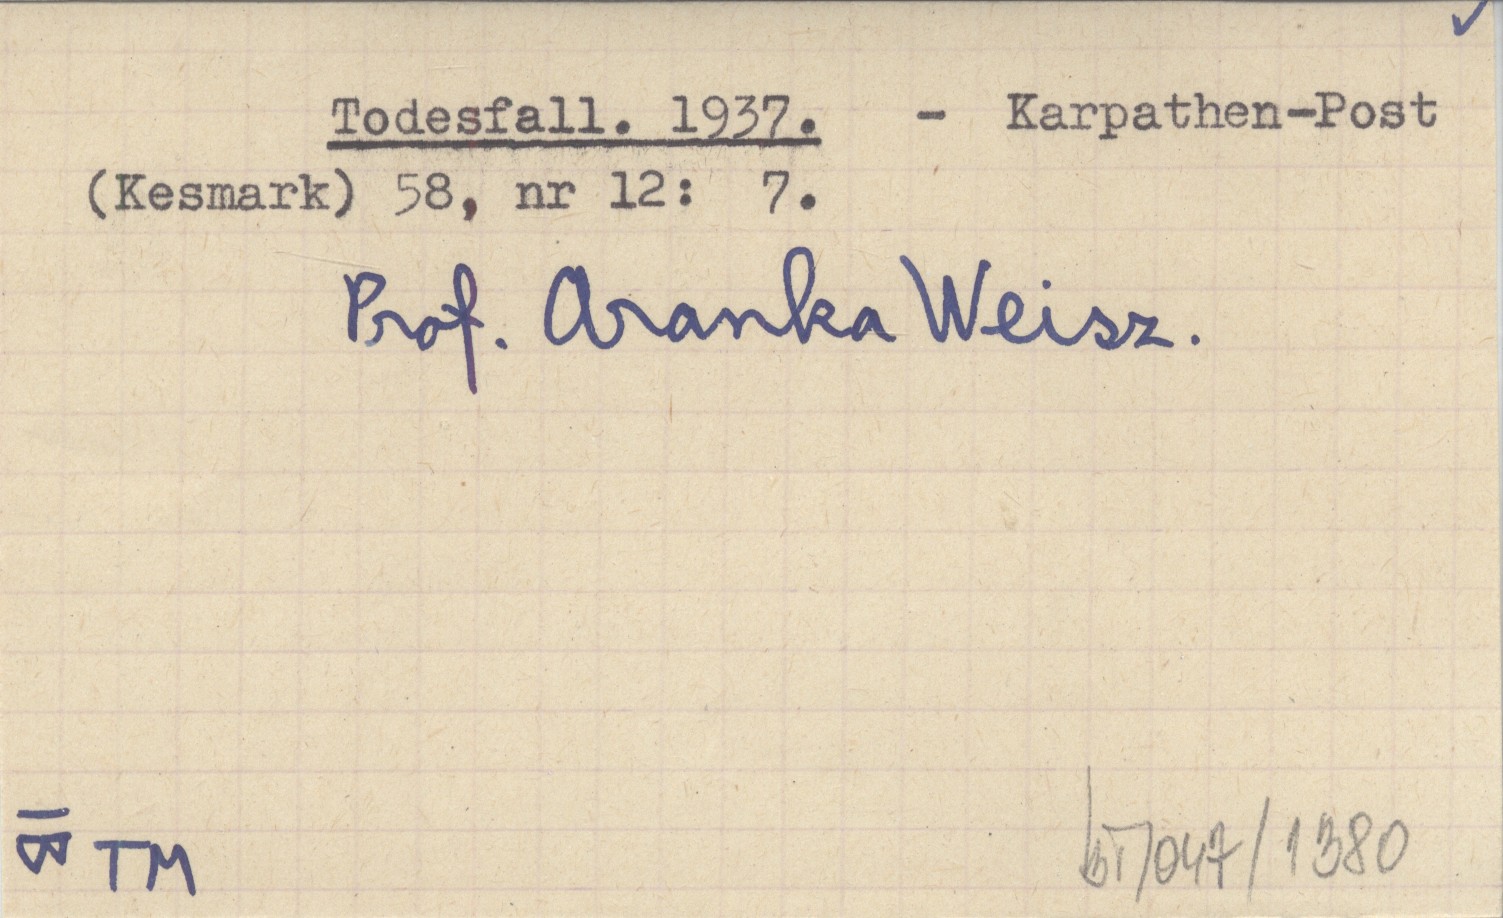 Todesfall. 1937. - Karpathen-Post
(Kesmark) 58, nr 12: 7.
Prof. Aranka Weisz.
TM
/047/1380